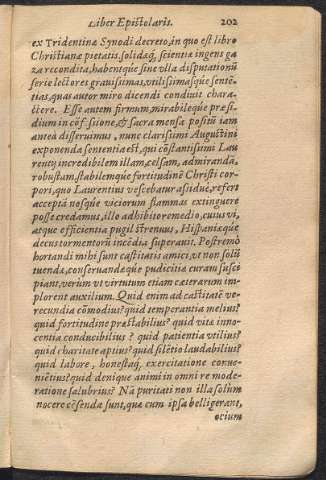 Liber Epistolaris. 202
ex Tridentinæ Synodi decreto, in quo est libro
Christianæ pietatis, solidæq́; scientiæ ingens ga
za recondita, habentq́ue sine vlla disputationũ
serie lectores grauissimas, vtilissimasq́ue sentẽ-
tias, quas autor miro dicendi condiuit chara-
ctere. Esse autem firmum, mirabileq́ue præsi-
dium in cõfessione, & sacra mensa positũ iam
antea disseruimus, nunc clarissimi Augustini
exponenda sententia est, qui cõstantissimi Lau
rentij incredibilem illam, celsam, admirandã,
robustam, stabilemq́ue fortitudinẽ Christi cor-
pori, quo Laurentius vescebatur asiduè, refert
acceptã nosq́ue viciorum flammas extinguere
posse credamus, illo adhibito remedio, cuius vi,
atque efficientia pugil strenuus, Hispaniæq́ue
decus tormentorũ incẽdia superauit. Postremò
hortandi mihi sunt castitatis amici, vt non solũ
tuendæ, conseruandæq́ue pudicitiæ curam susci
piant, verùm vt virtutum etiam cæterarum im-
plorent auxilium. Quid enim ad castitatẽ ve-
recundia cõmodius? quid temperantia melius?
quid fortitudine præstabilius? quid vitæ inno-
centia conducibilius? quid patientia vtilius?
quid charitate aptius? quid silẽtio laudabilius?
quid labore, honestaq́; exercitatione conue-
niẽtius? quid denique animi in omni re mode-
ratione salubrius? Nã puritati non illa solùm
nocere cẽsenda sunt, quæ cum ipsa belligerant,
otium